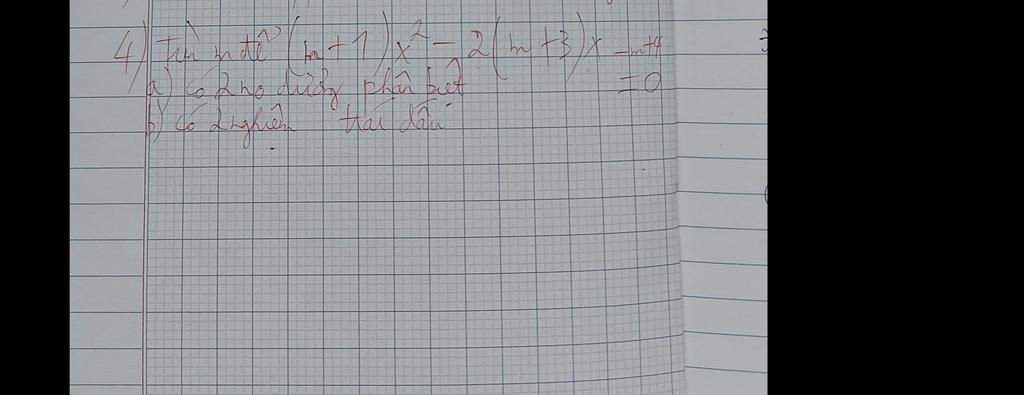 4) Tìm m để (m+1)x² - 2(m+3)x -m+4
=0
a) có 2 no dương phân biệt
b) có 2 nghiệm trái dấu